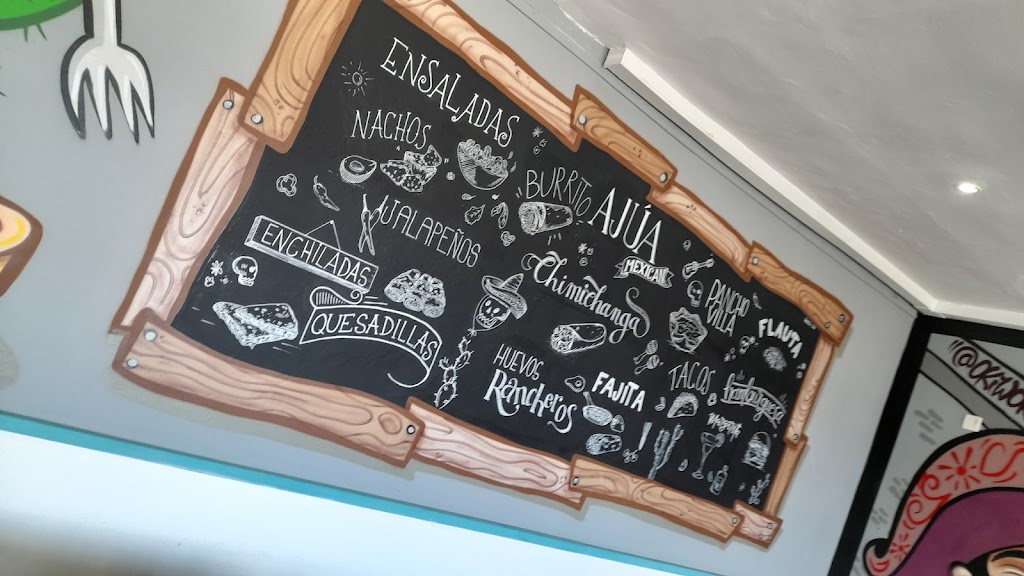 ENSALADAS
NACHOS
JALAPEÑOS
ENCHILADAS
QUESADILLAS
BURRITO
AJÚA
MEXICAN
Chimichanga
HUEVOS
Rancheros
PANCHO
VILLA
FLAUTA
FAJITA
TACOS
Hamburguesa